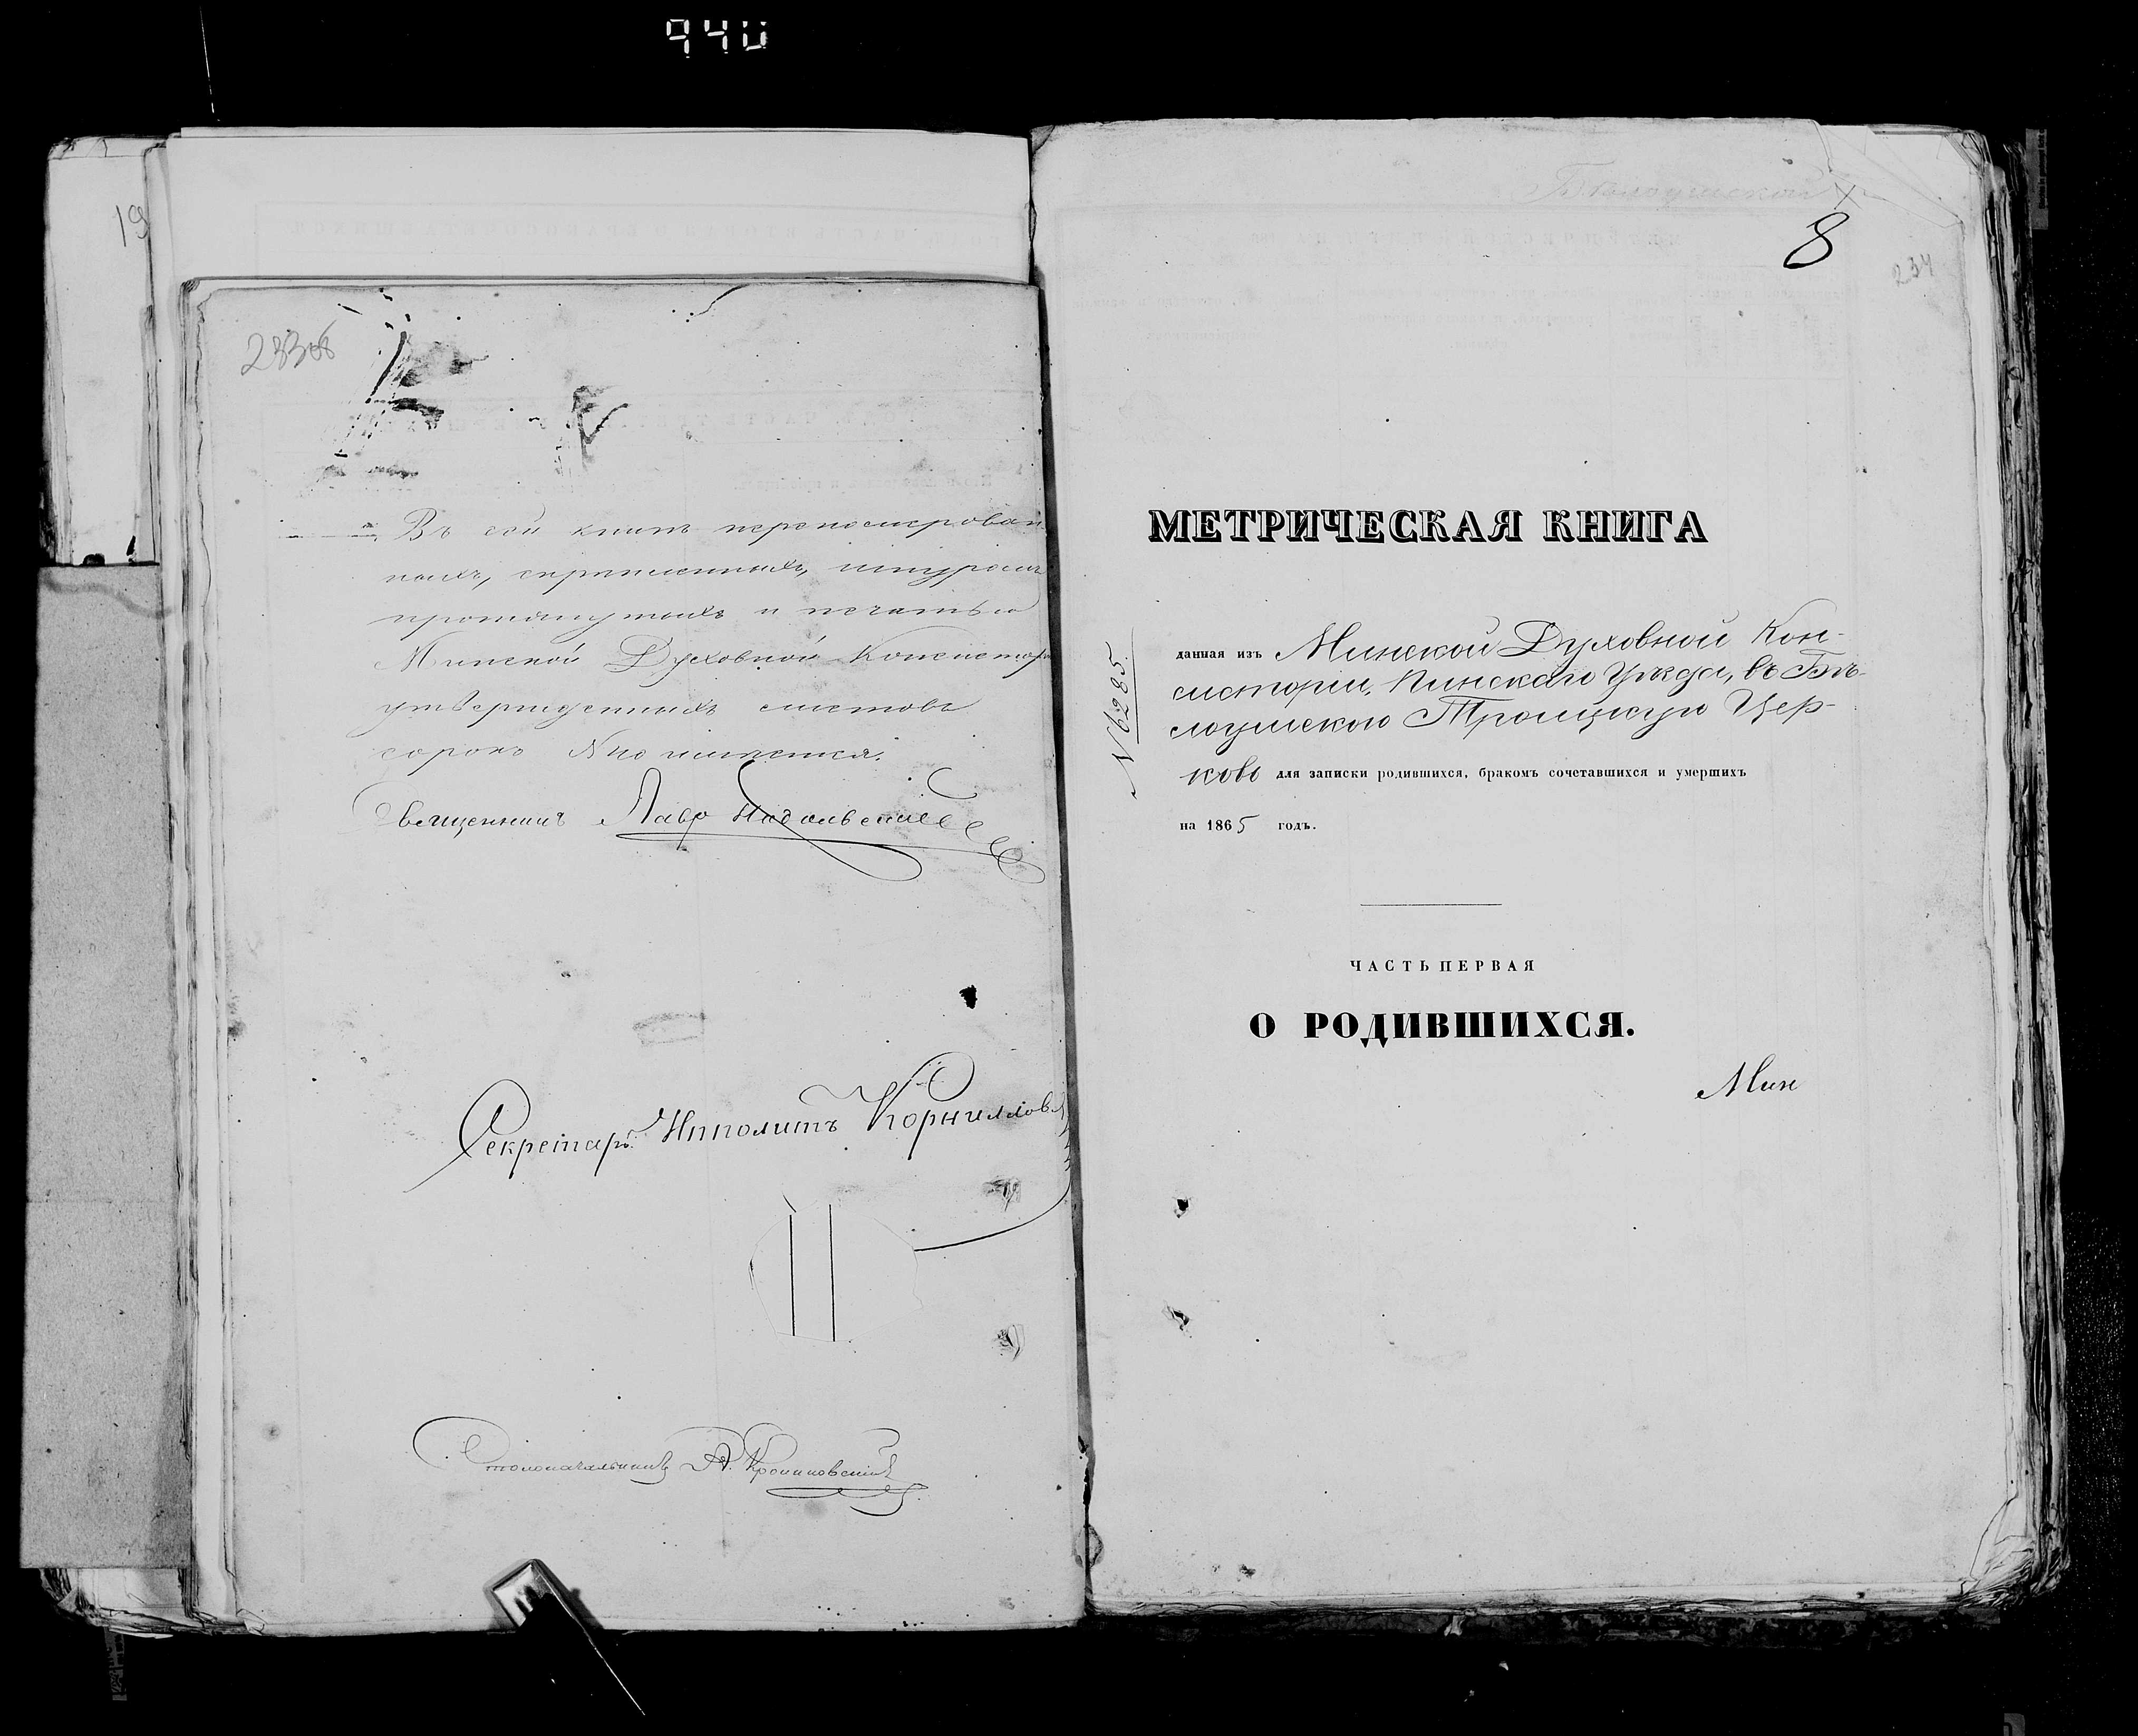 940
19
Въ сей книгѣ перенумерован-
ныхъ, скрѣпленныхъ, шнуромъ
протянутыхъ и печатью
Минской Духовной Консистор
утвержденныхъ листовъ
сорокъ
Священникъ Лавр
Секретарь Ипполитъ Корниллов
Столоначальникъ
8
234
МЕТРИЧЕСКАЯ КНИГА
N 6285.
данная изъ Минской Духовной Кон-
систоріи, Пинскаго Уѣзда, въ Бѣ-
лоушскою Троицкую Цер-
ковь для записки родившихся, бракомъ сочетавшихся и умершихъ
на 1865 годъ.
ЧАСТЬ ПЕРВАЯ
О РОДИВШИХСЯ.
Мин